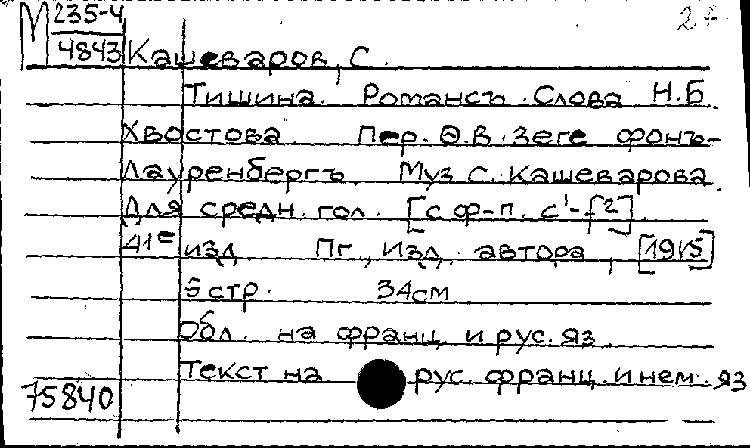 М 235-4
4843
Кашеваров, С.
Тишина. Романсъ. Слова Н.Б.
Хвостова. Пер. Ѳ.В. Зеге фонъ-
Лауренбергъ. Муз С. Кашеварова.
Для средн. гол. [с ф-п. c¹-f²].
41е изд. Пг., Изд. автора, [1915]
5 стр. 34см
Обл. на франц. и рус. яз.
Текст на рус. франц. и нем. яз
75840